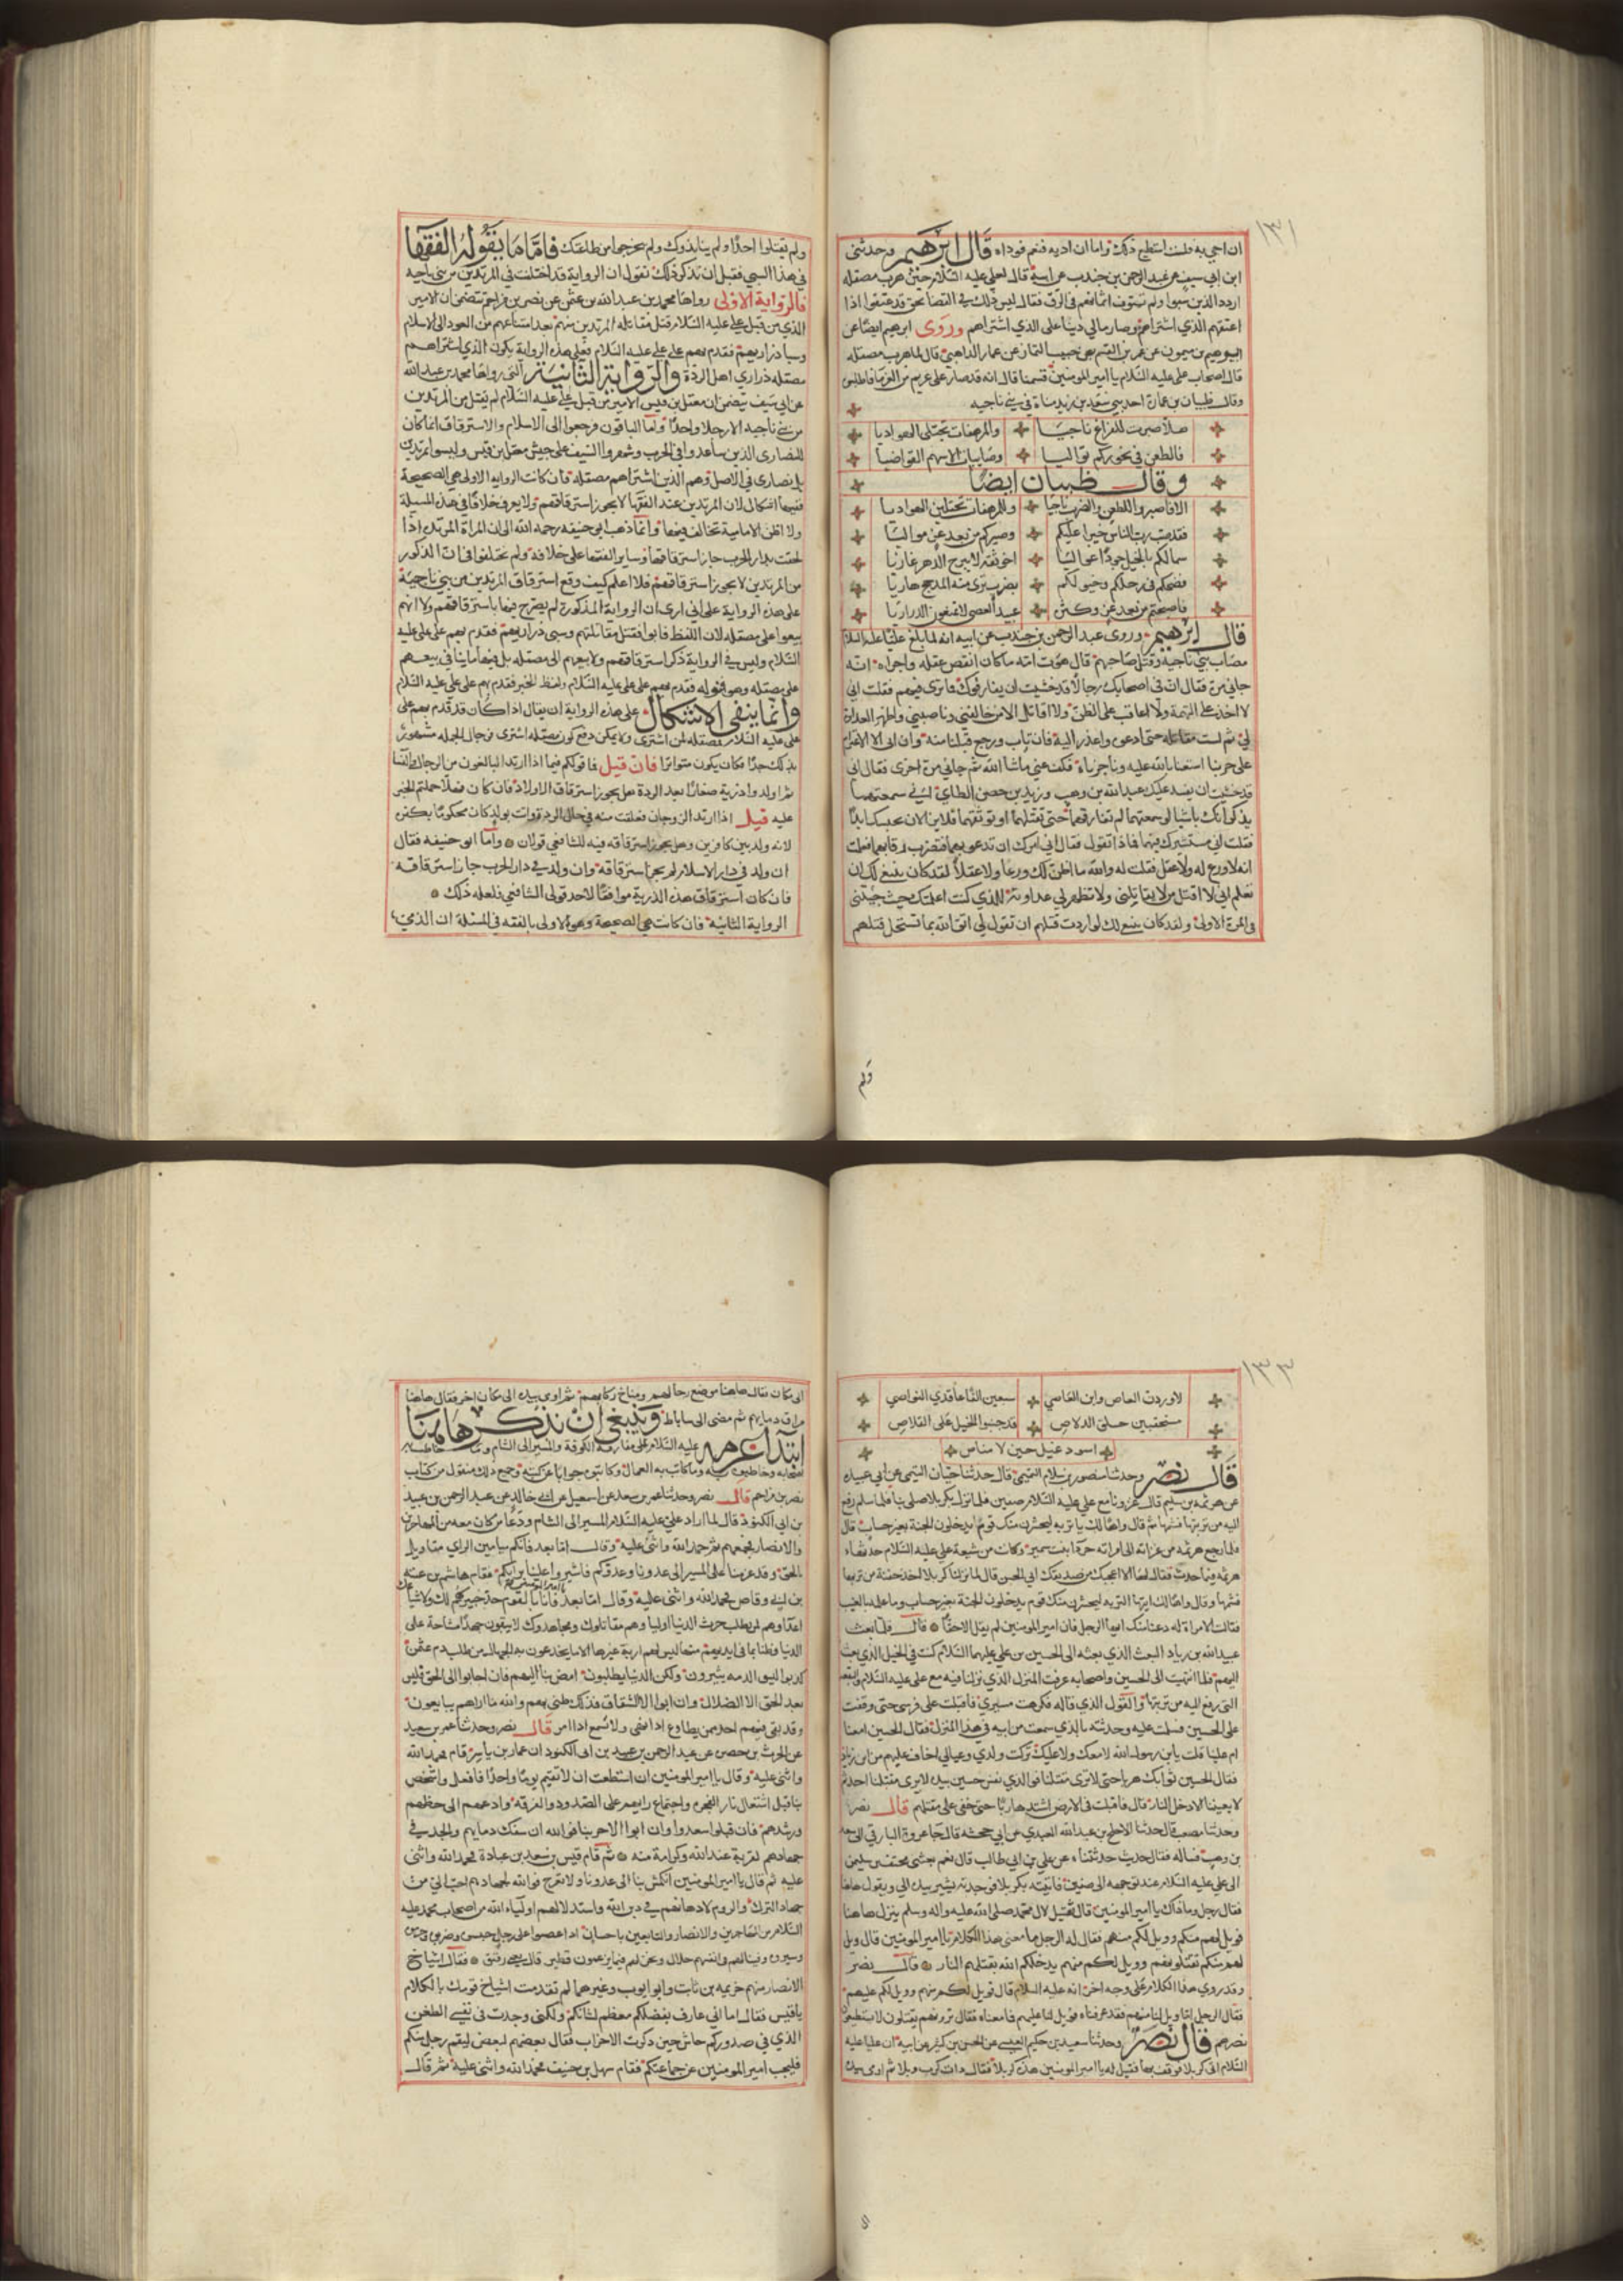 ١٣١
ان اجي به فلست استطيع ذلك واما ان اديه فنعم فوداه قال ابرهيم وحدثني
ابن ابي سيف عن عبد الرحمن بن جندب عن ابيه قال قيل لعلي عليه السلام حين هرب مصقله
اردد الذين سبوا ولم تستوف اثمانهم في الرق فقال ليس ذلك في القضا بحق قد عتقوا اذا
اعتقهم الذي اشتراهم وصار مالي دينا على الذي اشتراهم وروى ابرهيم ايضا عن
ابرهيم بن ميمون عن عمر بن القسم بن حبيب التمار عن عمار الدهني قال لما هرب مصقله
قال اصحاب علي عليه السلام يا امير المومنين فيئنا قال انه قد صار على غريم من الغرما فاطلبوه
وقال ظبيان بن عمارة احد بني سعد بن زيد مناة في بني ناجيه
هلا صبرت للقراع ناجيا والمرهفات تختلي الهواديا
فالطعن في نحوركم تواليا وصايبات الاسهم القواضيا
وقال ظبيان ايضا
الا فاصبروا للطعن والضرب ناجيا وللمرهفات تختلين الهواديا
فقد صب رب الناس خزيا عليكم وصيركم من بعد عز مواليا
سما لكم بالخيل جردا عواليا اخو ثقة لا يبرح الدهر غازيا
فصبحكم في رحلكم وخيولكم بضرب ترى منه المدجج هاويا
فاصبحتم من بعد عز وكثرة عبيد العصا لا تمنعون الذراريا
قال ابرهيم وروى عبد الرحمن بن جندب عن ابيه انه لما بلغ عليا عليه السلام
مصاب بني ناجية وقتل صاحبهم قال هوت امه ما كان انقص عقله واجراه انه
جاني مرة فقال ان في اصحابك رجالا قد خشيت ان يفارقوك فما ترى فيهم فقلت اني
لا اخذ على التهمة ولا اعاقب على الظن ولا اقاتل الا من خالفني وناصبني واظهر العداوة
لي ثم لست مقاتله حتى ادعوه واعذر اليه فان تاب ورجع قبلنا منه وان ابى الا الاعتزام
على حربنا استعنا بالله عليه وناجزناه فكف عني ما شا الله ثم جاني مرة اخرى فقال لي
قد خشيت ان يفسد عليك عبد الله بن وهب وزيد بن حصن الطاي اني سمعتهما
يذكرانك باشيا لو سمعتهما لم تفارقهما حتى تقتلهما او توثقهما فلا يزالان بمحبسك ابدا
فقلت اني مستشيرك فيهما فماذا تقول فقال اني امرك ان تدعو بهما فتضرب رقابهما فعلمت
انه لا ورع له ولا عقل فقلت له والله ما اظن لك ورعا ولا عقلا لقد كان ينبغي لك ان
تعلم اني لا اقتل من لا يقاتلني ولا تظهر لي عداوته للذي كنت اعلمتك حيث جيتني
في المرة الاولى ولقد كان ينبغي لك لو اردت قتلهم ان تقول لي اتق الله بما تستحل قتلهم
ولم
ولم يقتلوا احدا ولم ينابذوك ولم يخرجوا من طاعتك فاما ما يقوله الفقها
في هذا السبي فقبل ان نذكر ذلك نقول ان الرواية قد اختلفت في المرتدين من بني ناجيه
فالرواية الاولى رواها محمد بن عبد الله بن عثمن عن نصر بن مزاحم تتضمن ان الامير
الذي من قبل علي عليه السلام قتل مقاتلة المرتدين منهم بعد امتناعهم من العود الى الاسلام
وسبا ذراريهم فقدم بهم على علي عليه السلام فعلى هذه الرواية يكون الذين اشتراهم
مصقله ذراري اهل الردة والرواية الثانية التي رواها محمد بن عبد الله
عن ابي سيف تتضمن ان معقل بن قيس الامير من قبل علي عليه السلام لم يقتل من المرتدين
من بني ناجيه الا رجلا واحدا واما الباقون فرجعوا الى الاسلام والاسترقاق انما كان
للنصارى الذين ساعدوا في الحرب وشهروا السيف على جيش معقل بن قيس وليسوا مرتدين
بل نصارى في الاصل وهم الذين اشتراهم مصقله فان كانت الرواية الاولى هي الصحيحة
ففيها اشكال لان المرتدين عند الفقها لا يجوز استرقاقهم ولا يعرف خلافا في هذه المسيلة
ولا اظن الامامية تخالف فيها وانما ذهب ابو حنيفه رحمه الله الى ان المراة المرتده اذا
لحقت بدار الحرب جاز استرقاقها وساير الفقها على خلافه ولم يختلفوا في ان الذكور
من المرتدين لا يجوز استرقاقهم فلا اعلم كيف وقع استرقاق المرتدين من بني ناجية
على هذه الرواية على اني ارى ان الرواية المذكورة لم يصرح فيها باسترقاقهم ولا انهم
بيعوا على مصقله لان اللفظ فابوا فقتل مقاتلتهم وسبى ذراريهم فقدم بهم على علي عليه
السلام وليس في الرواية ذكر استرقاقهم ولا بيعهم الى مصقله بل فيها ما ينافي بيعهم
على مصقله وهو قوله فقدم بهم على علي عليه السلام ولفظ الخبر فقدم بهم على علي عليه السلام
وانما ينفى الاشكال على هذه الرواية ان يقال اذا كان قد قدم بهم على
علي عليه السلام فمصقله لمن اشترى ولا يمكن دفع كون مصقله اشترى فحال الجمله مشهور
بذلك جدا فكان يكون متواترا فان قيل فما قولكم فيما اذا ارتد البالغون من الرجال والنسا
ثم اولدوا ذرية صغارا بعد الردة هل يجوز استرقاق الاولاد فان كان فهلا حملتم الخبر
عليه قيل اذا ارتد الزوجان فحملت منه في حال الردة واتت بولد كان محكوما بكفره
لانه ولد بين كافرين وهل يجوز استرقاقه فيه للشافعي قولان واما ابو حنيفه فقال
ان ولد في دار الاسلام لم يجز استرقاقه وان ولد في دار الحرب جاز استرقاقه
فان كان استرقاق هذه الذرية موافقا لاحد قولي الشافعي فلعله ذلك
الرواية الثانية فان كانت هي الصحيحة وهو الاولى بالفقه في المسئلة ان الذمي
١٣٣
لاوردن العاص وابن العاصي سبعين الفا عاقدي النواصي
مستحقبين حلق الدلاص قد جنبوا الخيل على القلاص
اسود غيل حين لا مناص
قال نصر وحدثنا منصور بن سلام التميمي قال حدثنا حيان التيمي عن ابي عبيده
عن هرثمه بن سليم قال غزونا مع علي عليه السلام صفين فلما نزل بكربلا صلى بنا فلما سلم رفع
اليه من تربتها فشمها ثم قال واها لك يا تربه ليحشرن منك قوم يدخلون الجنة بغير حساب قال
فلما رجع هرثمه من غزاته الى امراته جردا بنت سمير وكانت من شيعة علي عليه السلام حدثها
هرثمه فيما حدث فقال لها الا اعجبك من صديقك ابي الحسن قال لما نزلنا كربلا اخذ حفنة من تربتها
فشمها وقال واها لك ايتها التربه ليحشرن منك قوم يدخلون الجنة بغير حساب وما علمه بالغيب
فقالت المراة له دعنا منك ايها الرجل فان امير المومنين لم يقل الا حقا قال فلما بعث
عبيد الله بن زياد البعث الذي بعثه الى الحسين بن علي عليهما السلام كنت في الخيل الذي بعث
اليهم فلما انتهيت الى الحسين واصحابه عرفت المنزل الذي نزلنا فيه مع علي عليه السلام والبقعة
التي رفع اليه من تربتها والقول الذي قاله فكرهت مسيري فاقبلت على فرسي حتى وقفت
على الحسين فسلمت عليه وحدثته بالذي سمعت من ابيه في هذا المنزل فقال الحسين امعنا
ام علينا قلت يا بن رسول الله لا معك ولا عليك تركت ولدي وعيالي اخاف عليهم من ابن زياد
فقال الحسين فول هربا حتى لا ترى مقتلنا فوالذي نفس حسين بيده لا يرى مقتلنا احد ثم
لا يعيننا الا دخل النار قال فاقبلت في الارض اشتد هاربا حتى خفي على مقتلهم قال نصر
وحدثنا مصعب قال حدثنا الاجلح بن عبد الله الكندي عن ابي جحيفه قال جا عروة البارقي الى سعد
بن وهب فساله فقال حديث حدثتناه عن علي بن ابي طالب قال نعم بعثني مخنف بن سليم
الى علي عليه السلام عند توجهه الى صفين فاتيته بكربلا فوجدته يشير بيده الي ويقول هاهنا
فقال رجل وما ذاك يا امير المومنين قال ثقل لآل محمد صلى الله عليه واله وسلم ينزل هاهنا
فويل لهم منكم وويل لكم منهم فقال له الرجل ما معنى هذا الكلام يا امير المومنين قال ويل
لهم منكم تقتلونهم وويل لكم منهم يدخلكم الله بقتلهم النار قال نصر
وقد روي هذا الكلام على وجه اخر انه عليه السلام قال فويل لكم منهم وويل لكم عليهم
فقال الرجل اما ويل لنا منهم فقد عرفناه فويل لنا عليهم فما معناه فقال ترونهم يقتلون لا تستطيعون
نصرهم قال نصر وحدثنا سعيد بن حكيم العبسي عن الحسن بن كثير عن ابيه ان عليا عليه
السلام اتى كربلا فوقف بها فقيل له يا امير المومنين هذه كربلا فقال ذات كرب وبلا ثم اوى بيده
الى
الى مكان فقال هاهنا موضع رحالهم ومناخ ركابهم ثم اوى بيده الى مكان اخر فقال هاهنا
مراق دمايهم ثم مضى الى ساباط وينبغي ان نذكر هاهنا
ابتدا عزمه عليه السلام على مفارقة الكوفة والمسير الى الشام وما خاطب به
اصحابه وما خاطبوه به وما كاتب به العمال وكاتبوه جوابا عن كتبه وجميع ذلك منقول من كتاب
نصر بن مزاحم قال نصر وحدثنا عمر بن سعد عن اسمعيل بن ابي خالد عن عبد الرحمن بن عبيد
بن ابي الكنود قال لما اراد علي عليه السلام المسير الى الشام دعا من كان معه من المهاجرين
والانصار فجمعهم ثم حمد الله واثنى عليه وقال اما بعد فانكم ميامين الراي مقاويل
بالحق وقد عزمنا على المسير الى عدونا وعدوكم فاشيروا علينا برايكم فقام هاشم بن عتبه
بن ابي وقاص فحمد الله واثنى عليه وقال اما بعد يا امير المومنين فانا بالقوم جد خبير هم لك ولاشياعك
اعدا وهم لمن يطلب حرث الدنيا اوليا وهم مقاتلوك ومجاهدوك لا يبقون جهدا مشاحة على
الدنيا وظنا بما في ايديهم منها ليس لهم اربة غيرها الا ما يخدعون به الجهال من طلب دم عثمن
كذبوا ليسوا لدمه يثيرون ولكن الدنيا يطلبون امض بنا اليهم فان اجابوا الى الحق فليس
بعد الحق الا الضلال وان ابوا الا الشقاق فذلك ظني بهم والله ما اراهم يبايعون
وقد بقي فيهم احد ممن يطاع اذا نهى ولا يسمع اذا امر قال نصر وحدثنا عمر بن سعيد
عن الحرث بن حصين عن عبد الرحمن بن عبيد بن ابي الكنود ان عمار بن ياسر قام فحمد الله
واثنى عليه وقال يا امير المومنين ان استطعت ان لا تقيم يوما واحدا فافعل واشخص
بنا قبل اشتعال نار الفجره واجتماع رايهم على الصدود والفرقه وادعهم الى حظهم
ورشدهم فان قبلوا سعدوا وان ابوا الا حربنا فوالله ان سفك دمايهم والجد في
جهادهم لقربة عند الله وكرامة منه ثم قام قيس بن سعد بن عبادة فحمد الله واثنى
عليه ثم قال يا امير المومنين انكمش بنا الى عدونا ولا تعرج فوالله لجهادهم احب الي من
جهاد الترك والروم لادهانهم في دين الله واستذلالهم اولياء الله من اصحاب محمد عليه
السلام من المهاجرين والانصار والتابعين باحسان اذا غضبوا على رجل حبسوه وضربوه وحرموه
وسيروه وفيئنا لهم في انفسهم حلال ونحن لهم فيما يزعمون قطين قال يعني رقيق فقال اشياخ
الانصار منهم خزيمه بن ثابت وابو ايوب وغيرهما لم تقدمت اشياخ قومك بالكلام
يا قيس فقال اما اني عارف بفضلكم معظم لشانكم ولكني وجدت في نفسي الطغن
الذي في صدوركم جاش حين ذكرت الاحزاب فقال بعضهم لبعض ليقم رجل منكم
فليجب امير المومنين عن جماعتكم فقام سهل بن حنيف فحمد الله واثنى عليه ثم قال